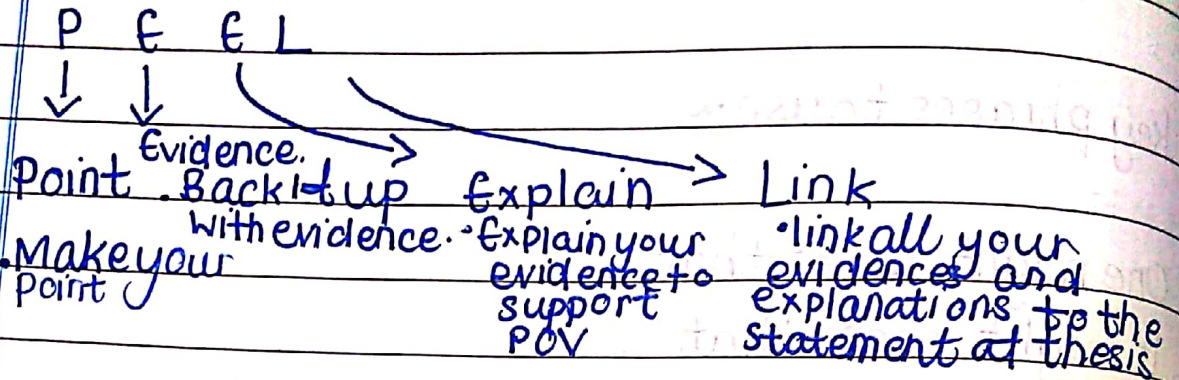 P E E L
Point
.Make your
point
Evidence.
.Back it up
with evidence.
Explain
•Explain your
evidence to
support
POV
Link
•link all your
evidences and
explanations to the
statement at thesis